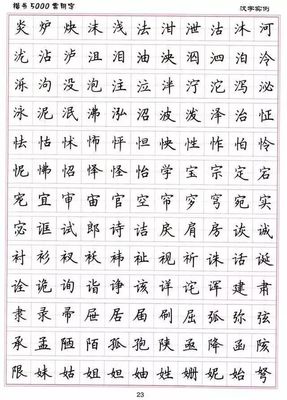 楷书5000常用字 汉字实例
炎炉炔沫浅法泄沽沭河
沾泪油泱泅泗泊泠
泺沿泡注泣泞泻泌
泳泥泯沸泓沼波泼泽治
怯怙怵怖怦性怍怕怜
怩怫怿怪怡学宝宗定宕
宠宜审宙官空帘穹宛实
宓诓试郎诗诘戾肩房诙诚
衬衫衩祆祎祉视祈诛话诞
诠诡询诣诤该详诧诨建肃
隶录帚屉居届刷屈弧弥弦
承孟陋陌孤孢陕亟降函陔
限妹姑姐妲妯姓姗妮始弩
23